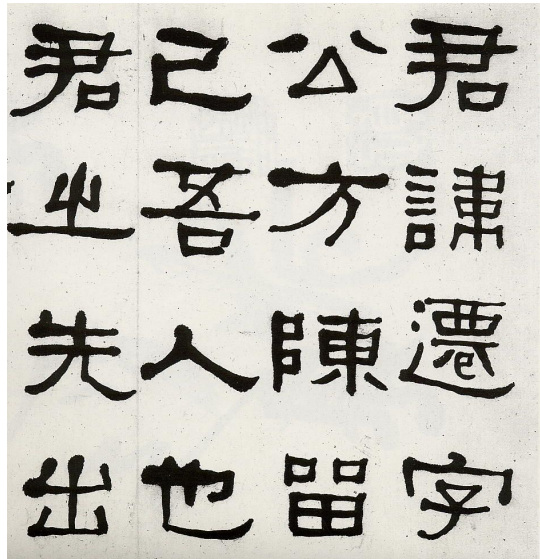 君諱遷字
公方陳留
己吾人也
君之先出